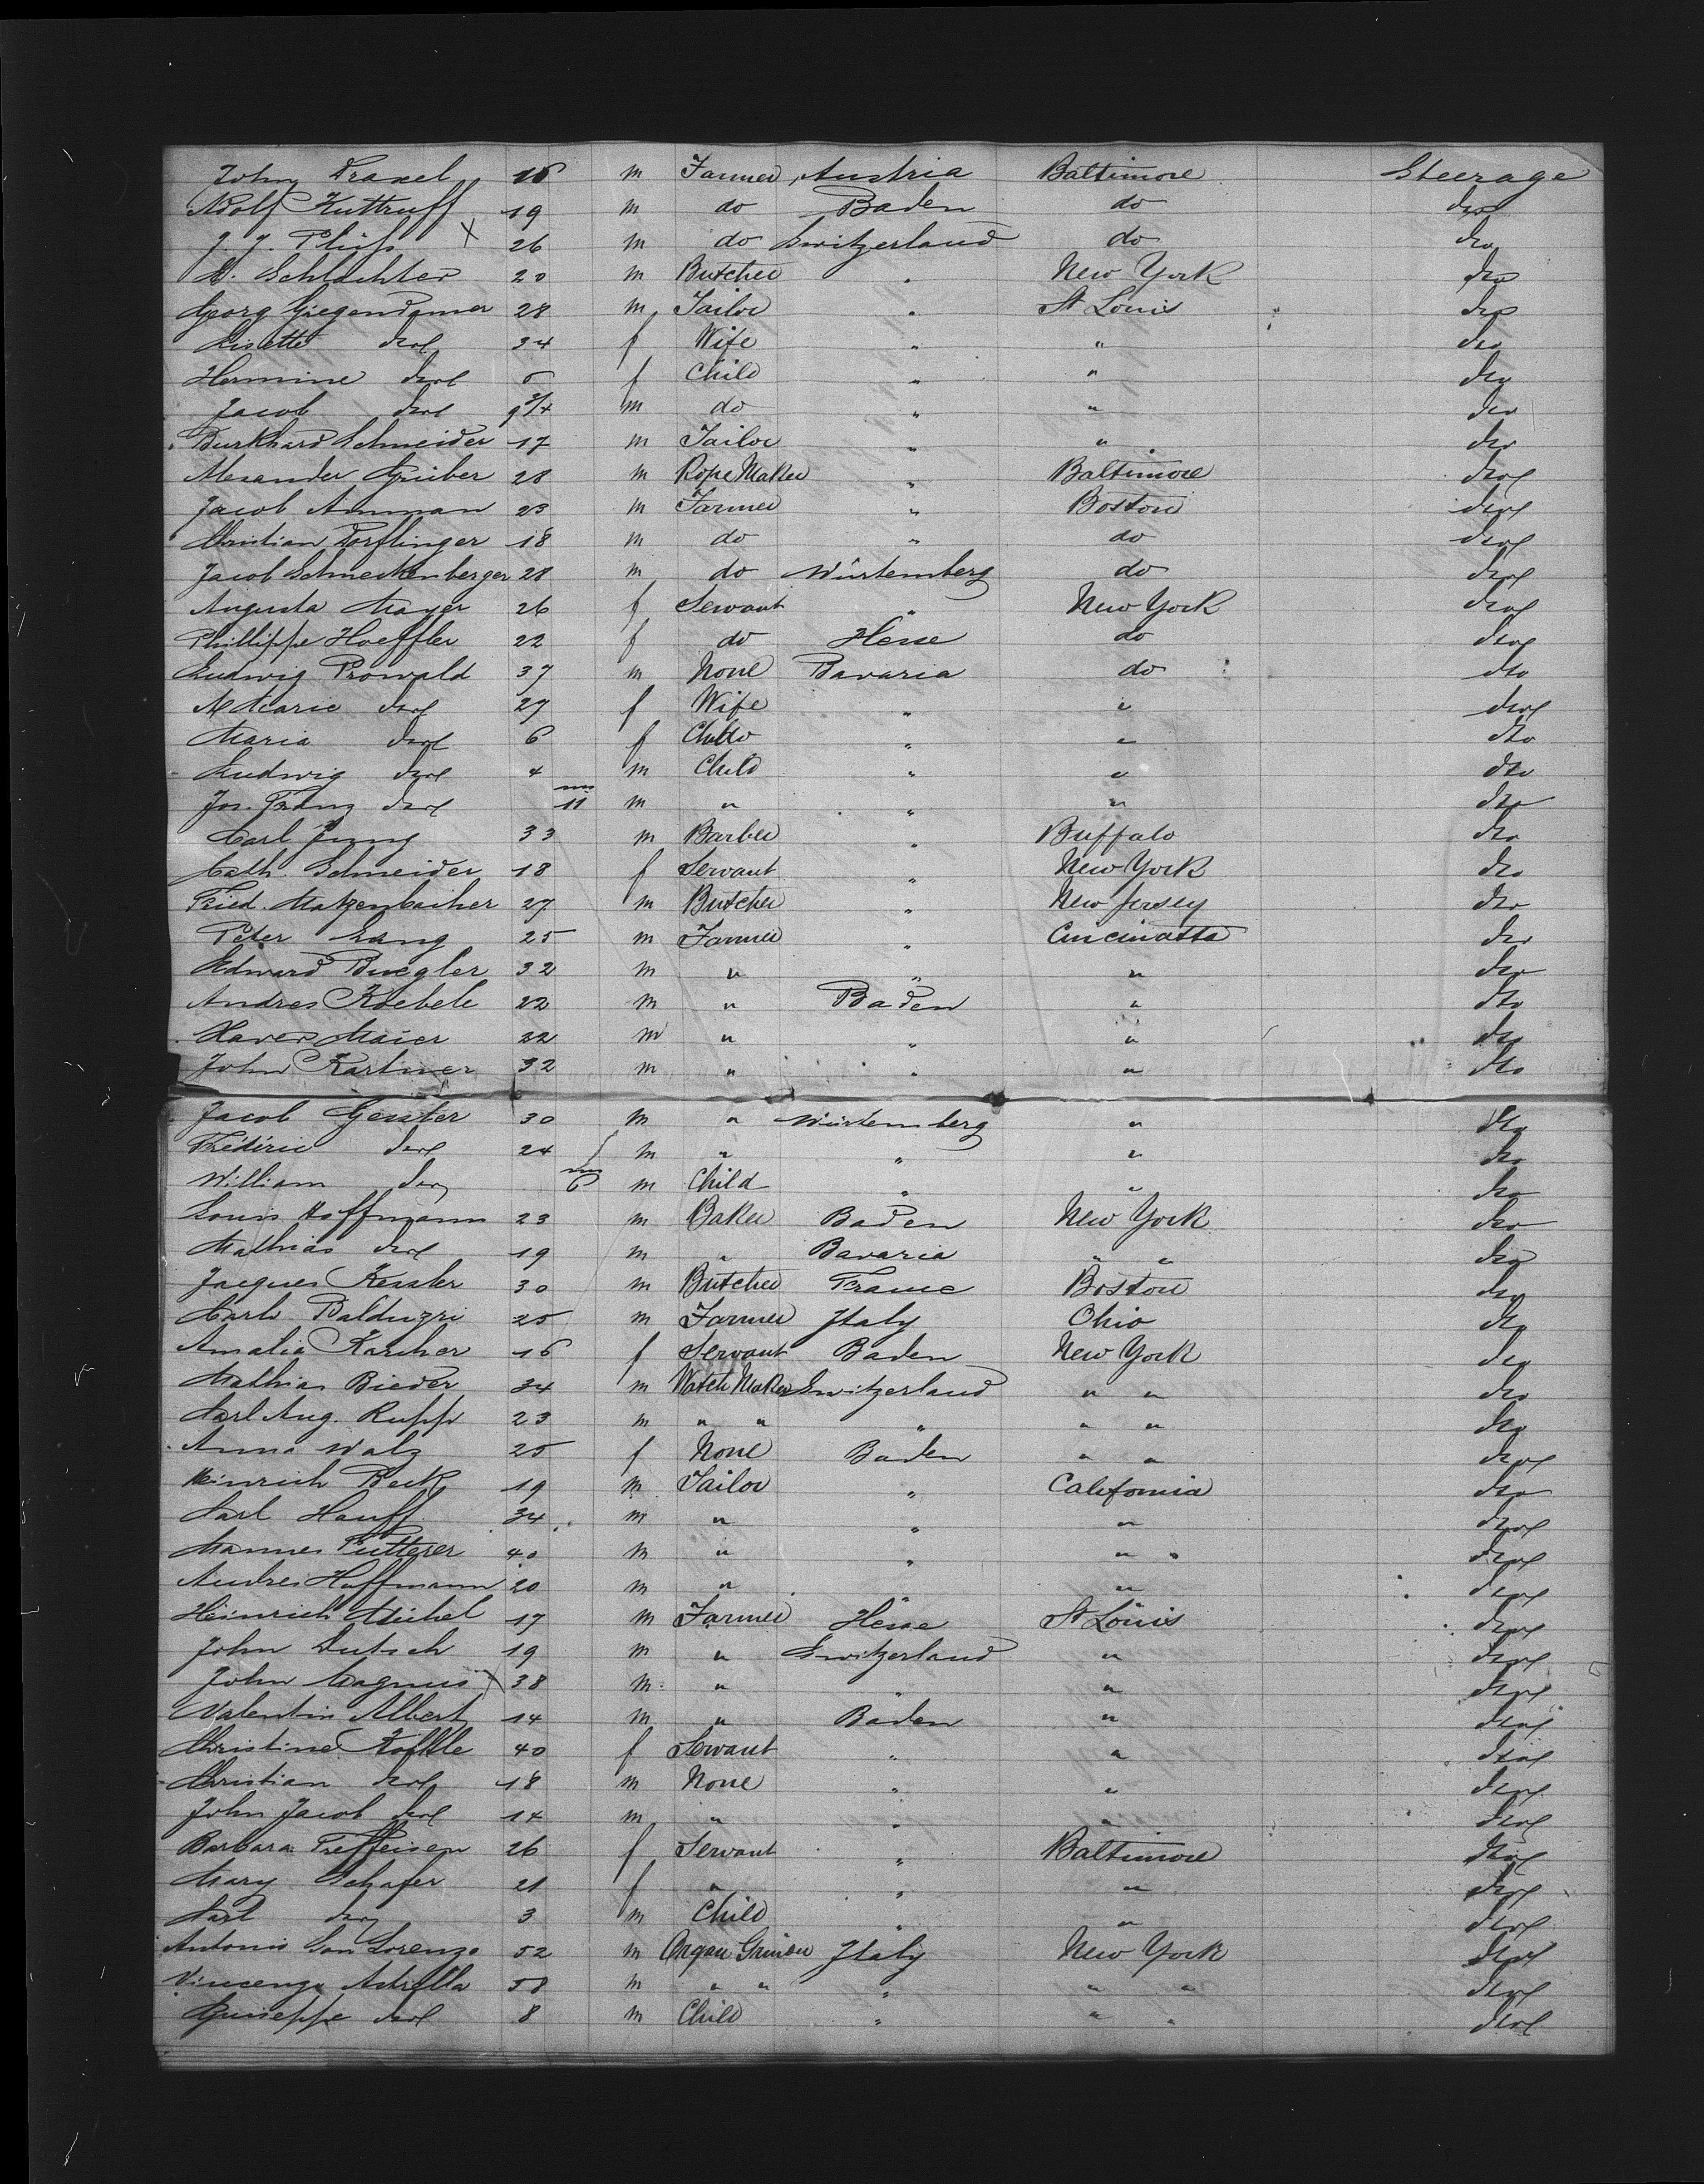 John Draxel 18 m Farmer Austria Baltimore Steerage
Adolf Kuttruff 19 m do Baden do dto
J. J. Plüss X 26 m do Switzerland do dto
A. Schlachter 20 m Butcher " New York dto
Georg Giegendanner 28 m Tailor " St Louis dto
Lisette dto 34 f Wife " " dto
Hermine dto 5 f Child " " dto
Jacob dto m do " " dto
Burkhard Schneider 17 m Tailor " " dto
Alexander Gruber 28 m Rope Maker " Baltimore dto
Jacob Amman 23 m Farmer " Boston dto
Christian Dorflinger 18 m do " do dto
Jacob Schneckenberger 28 m do Würtemberg do dto
Augusta Mayer 26 f Servant " New York dto
Phillippe Hoeffler 22 f do Hesse do dto
Ludwig Prowald 37 m None Bavaria do dto
M Marie dto 27 f Wife " " dto
Maria dto 6 f Child " " dto
Ludwig dto 4 m Child " " dto
Jos. Franz dto 11 m " " " dto
Carl Jung 33 m Barber " Buffalo dto
Cath. Schneider 18 f Servant " New York dto
Fried. Matzenbacher 27 m Butcher " New Jersey dto
Peter Lang 25 m Farmer " Cincinatta dto
Edward Buegler 32 m " " " dto
Andres Koebele 22 m " Baden " dto
Xaver Maier 22 m " " " dto
John Kartner 32 m " " " dto
Jacob Genter 30 m " Würtemberg " dto
Frédéric dto 24 m " " " dto
William dto 6 m Child " " dto
Louis Hoffmann 23 m Baker Baden New York dto
Mathias dto 19 m " Bavaria " " dto
Jacques Kessler 30 m Butcher France Boston dto
Carlo Balduzzi 25 m Farmer Italy Ohio dto
Amalia Karcher 16 f Servant Baden New York dto
Mathias Bieder 34 m Watch Maker Switzerland " " dto
Carl Aug. Rupp 23 m " " " " " dto
Anna Walz 25 f None Baden " " dto
Heinrich Beck 19 m Tailor " California dto
Carl Hauff 34 m " " " dto
Mannes Futterer 40 m " " " " dto
Andres Hoffmann 20 m " " " dto
Heinrich Michel 17 m Farmer Hesse St Louis dto
John Dutsch 19 m " Switzerland " dto
John Cagnus X 38 m " " " dto
Valentin Albert 14 m " Baden " dto
Christine 40 f Servant " " dto
Christian dto 18 m None " " dto
John Jacob dto 14 m " " " dto
Barbara Treffeisen 26 f Servant " Baltimore dto
Mary Schafer 21 f " " " dto
Carl dto 3 m Child " " dto
Antonio San Lorenzo 52 m Organ Grinder Italy New York dto
Vincenzo Astrella 58 m " " " " " dto
Guiseppe dto 8 m Child " " " dto